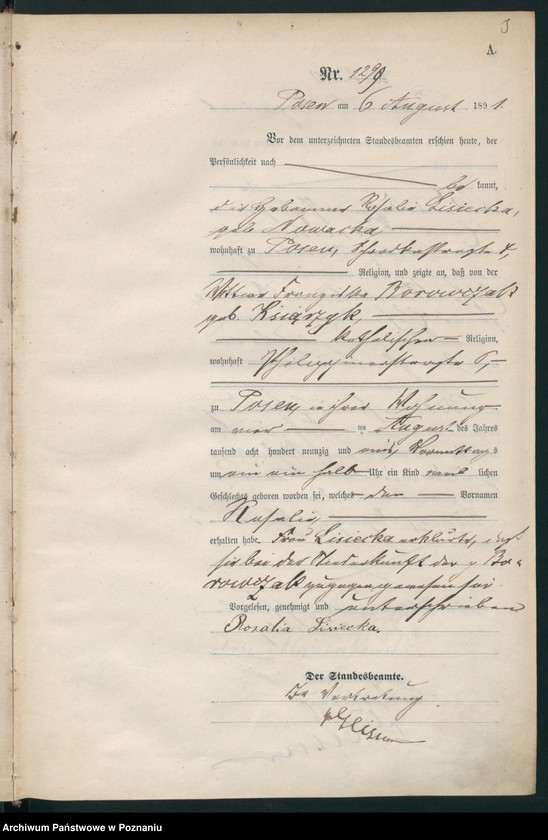 A.
Nr. 1290
Posen am 6 August 1891.
Vor dem unterzeichneten Standesbeamten erschien heute, der
Persönlichkeit nach
be kannt,
die Hebamme Rosalie Lisiecka,
geb. Nowacka
wohnhaft zu Posen,
Religion, und zeigte an, daß von der
Wittwe Franziska Borowczak
geb. Książyk,
katholischer Religion,
wohnhaft Philippinerstraße 6,
zu Posen, in ihrer Wohnung
am vier ten August des Jahres
tausend acht hundert neunzig und eins, Vormittags
um ein ein halb Uhr ein Kind weib lichen
Geschlechts geboren worden sei, welches den Vornamen
Rosalie,
erhalten habe. Frau Lisiecka erklärte, daß
sie bei der Niederkunft der p Bo-
rowczak zugegen gewesen sei
Vorgelesen, genehmigt und unterschrieben
Rosalia Lisiecka.
Der Standesbeamte.
In Vertretung
Archiwum Państwowe w Poznaniu